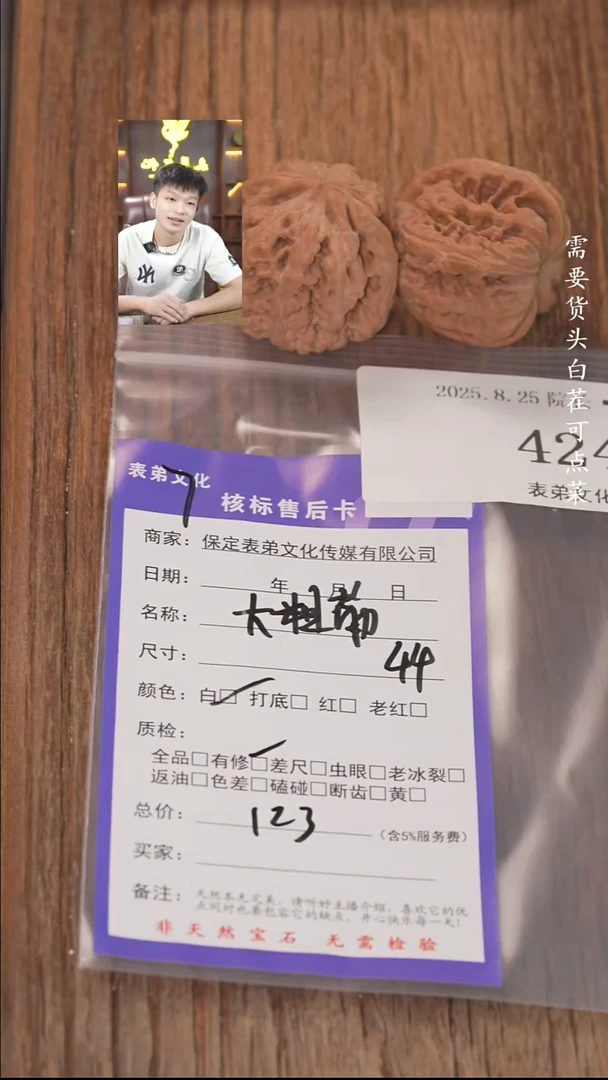 需要货头白茬可点菜
2025.8.25 院
424
表弟文化
表弟文化
7
核标售后卡
商家：保定表弟文化传媒有限公司
日期： 年 月 日
名称： 大粗筋
尺寸： 44
颜色：白☑ 打底□ 红□ 老红□
质检：
全品□有修☑差尺□虫眼□老冰裂□
返油□色差□磕碰□断齿□黄□
总价： 123 （含5%服务费）
买家：
备注：天然本无完美，请听好主播介绍，喜欢它的优
点同时也要包容它的缺点，开心快乐每一天！
非天然宝石 无需检验